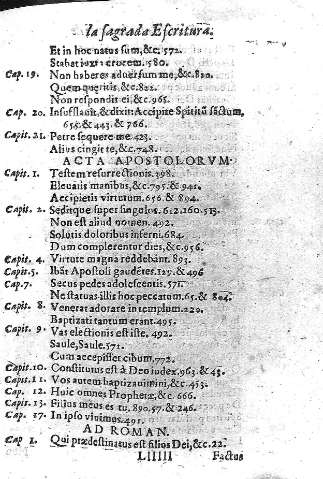 la sagrada Escritura.
Et in hoc natus sum, &c. 572.
Stabat iuxta crucem. 580.
Cap. 19. Non haberes aduersum me, &c. 820.
Quem queritis, &c. 822.
Non respondit ei, &c. 965.
Cap. 20. Insufflauit, & dixit: Accipite Spiritū sāctum,
655. & 443. & 766.
Capit. 21. Petre sequere me. 423.
Alius cinget te, &c. 748.
ACTA APOSTOLORVM.
Capit. 1. Testem resurrectionis. 398.
Eleuatis manibus, &c. 795. & 941.
Accipietis virtutem. 656. & 894.
Capit. 2. Seditque super singulos. 612. 160. 513.
Non est aliud nomen. 492.
Solutis doloribus inferni. 684.
Dum complerentur dies, &c. 956.
Capit. 4. Virtute magna reddebant. 893.
Capit. 5. Ibāt Apostoli gaudētes. 129. & 496
Cap. 7. Secus pedes adolescentis. 571.
Ne statuas illis hoc peccatum. 65. & 804.
Capit. 8. Venerat adorare in templum. 229.
Baptizati tantum erant. 495.
Capit. 9. Vas electionis est iste. 492.
Saule, Saule. 571.
Cum accepisset cibum. 772.
Capit. 10. Constitutus est à Deo iudex. 963. & 45.
Capit. 11. Vos autem baptizauimini, &c. 453.
Cap. 12. Huic omnes Prophetæ, &c. 666.
Capit. 13. Filius meus es tu, 890. 57. & 246.
Cap. 17. In ipso viuimus. 491.
AD ROMAN.
Cap 1. Qui prædestinatus est filius Dei, &c. 22.
LlIIII Factus